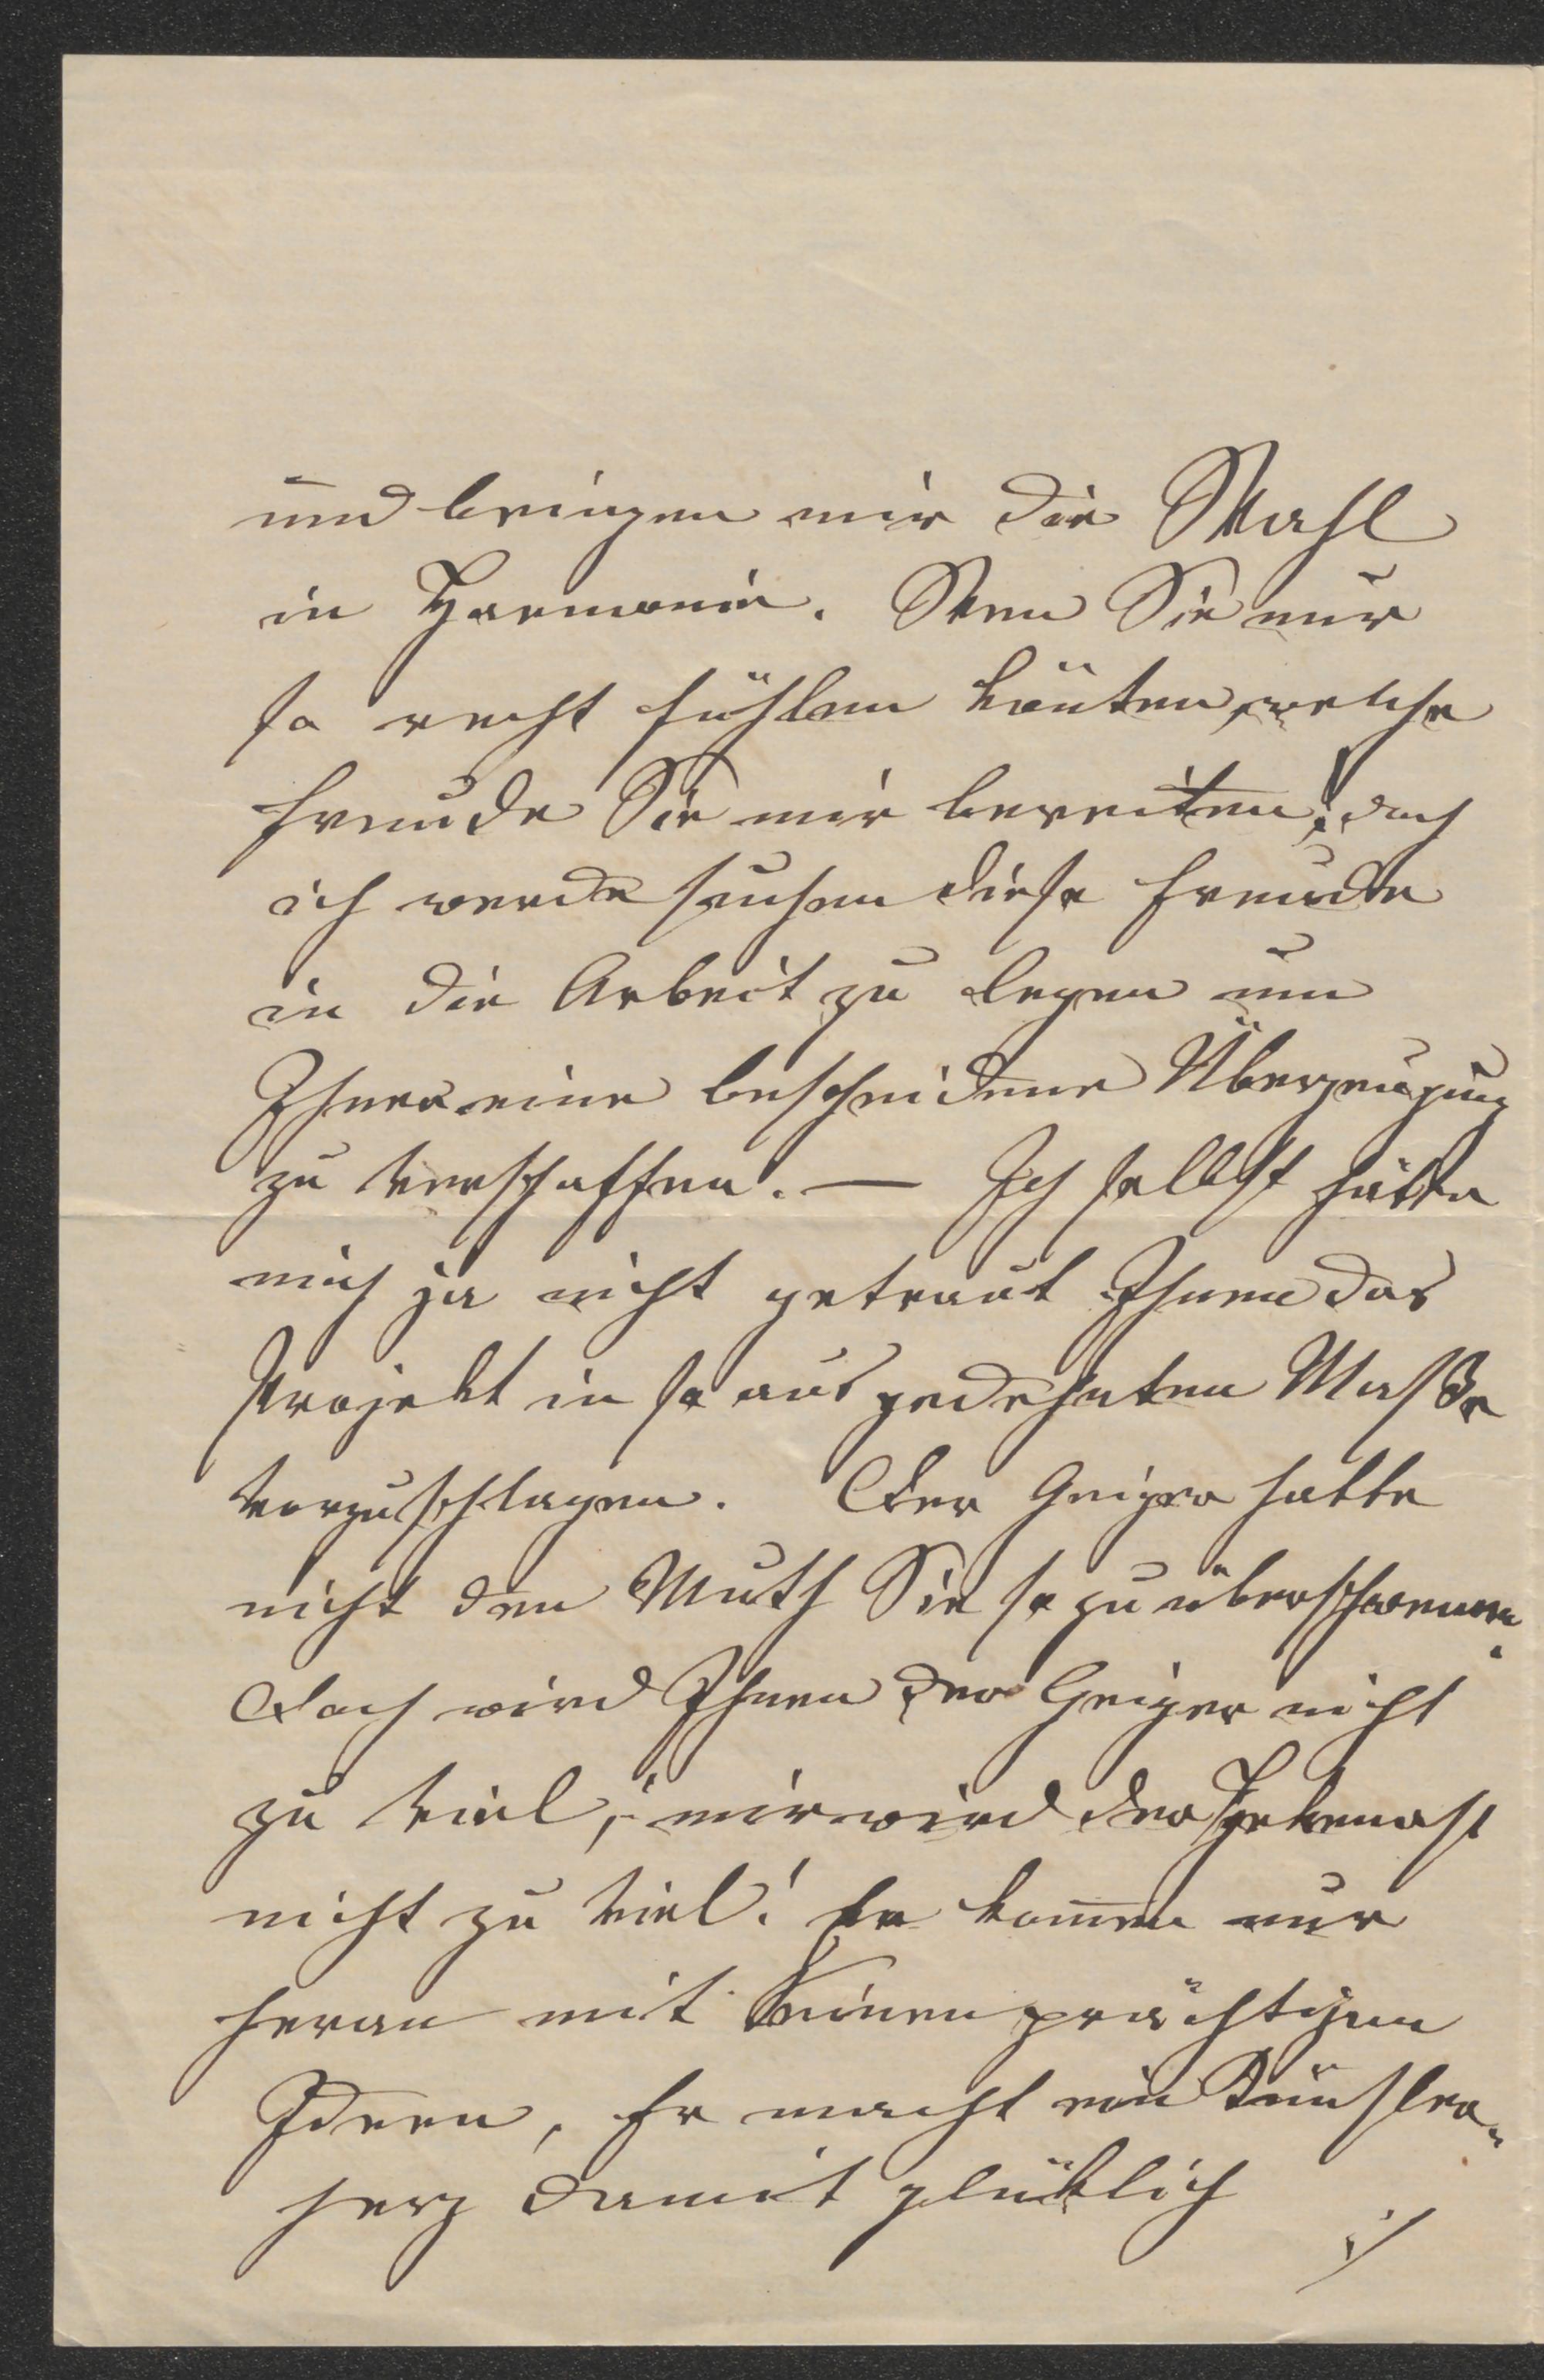 und bringen mir die Wahl
in Harmonie. Wen Sie nur
so recht fühlen könten, welche
Freude Sie mir bereiten! doch
ich werde suchen diese Freude
in die Arbeit zu legen um
Ihnen eine bescheidene Überzeugung
zu verschaffen. — Ich selbst hätte
mich ja nicht getraut Ihnen das
Projekt in so ausgedehnten Maße
vorzuschlagen. Der Geiger hatte
nicht den Muth Sie so zu überschwemen.
Doch wird Ihnen der Geiger nicht
zu viel, mir wird der
nicht zu viel! Er komme nur
heran mit Seinen prächtigen
Ideen, Er macht ein Künstler-
herz damit glüklich